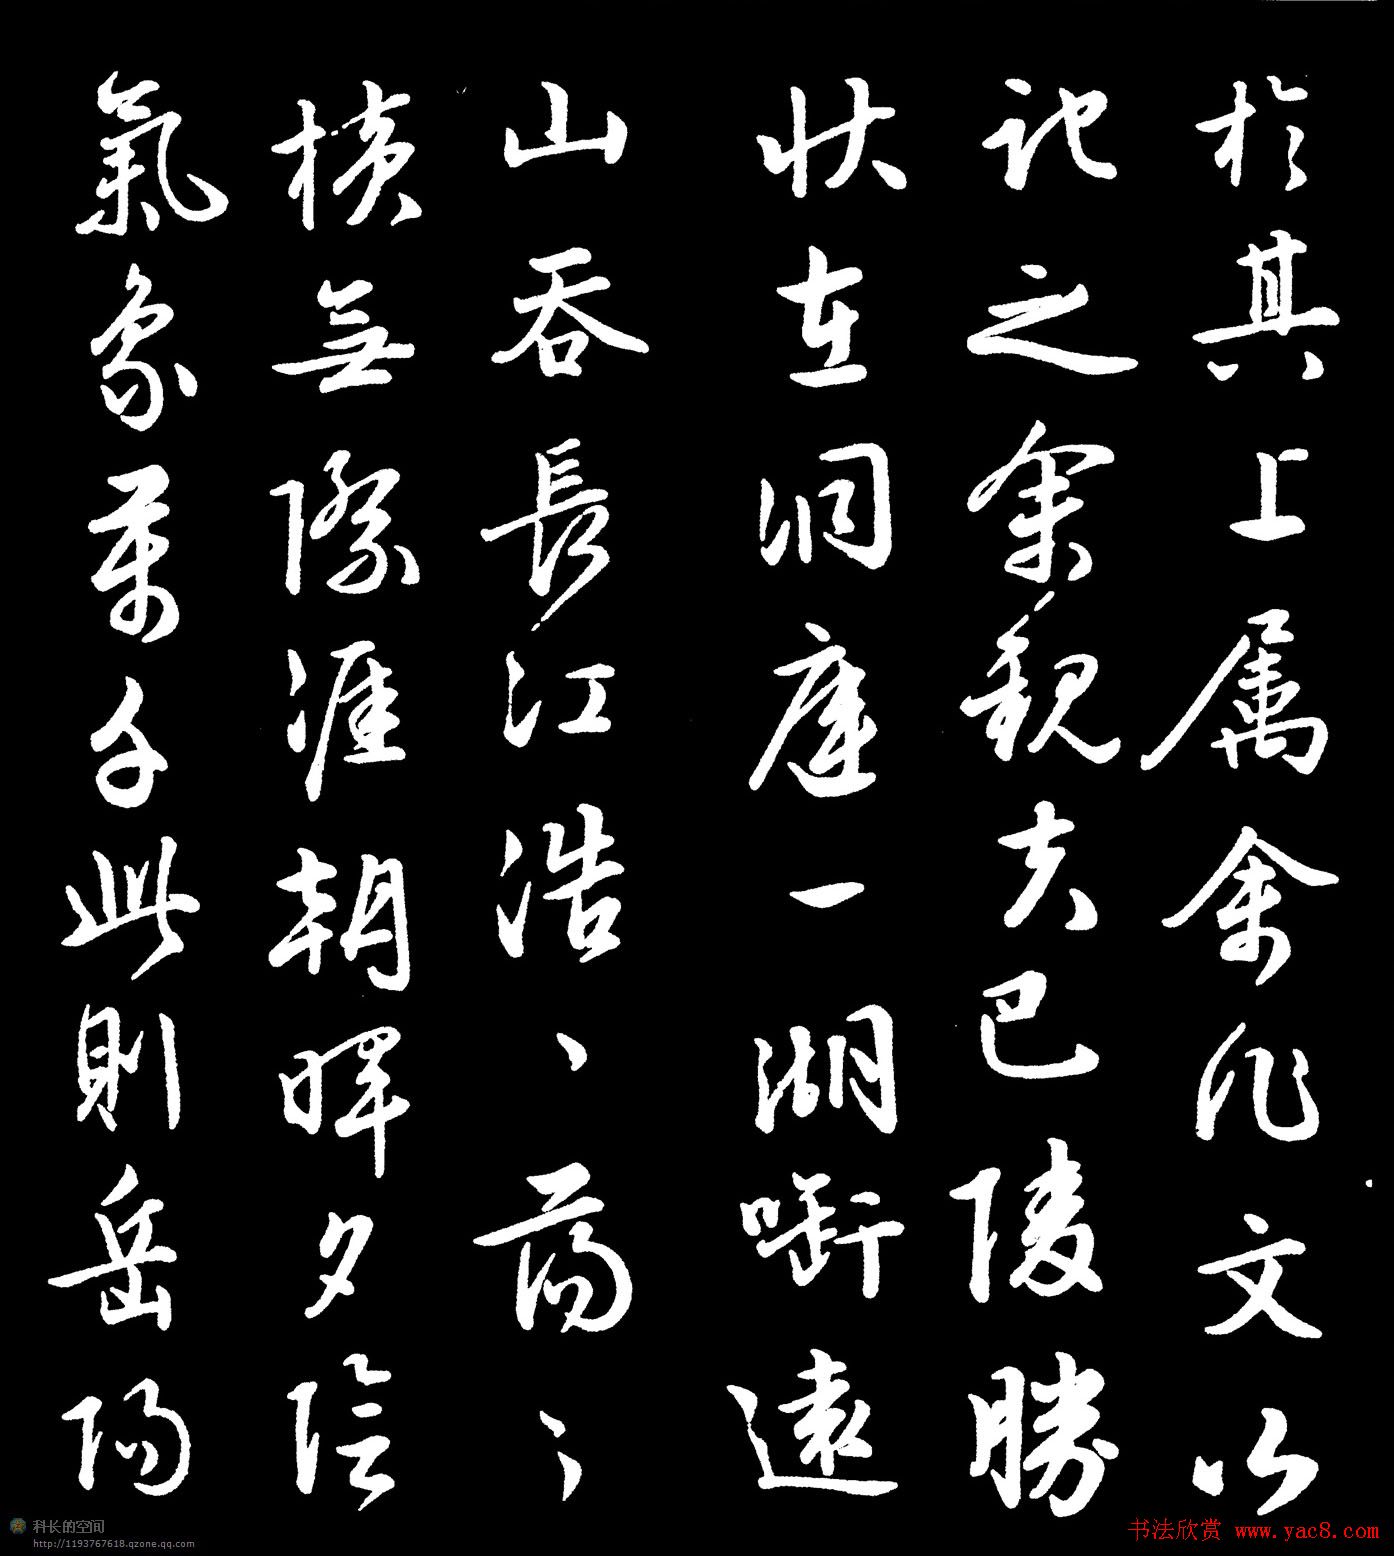 於其上属余作文以
記之余觀夫巴陵勝
状在洞庭一湖銜遠
山吞長江浩、蕩、
横無際涯朝暉夕陰
氣象萬千此則岳陽
科长的空间
http://1193767618.qzone.qq.com
书法欣赏 www.yac8.com